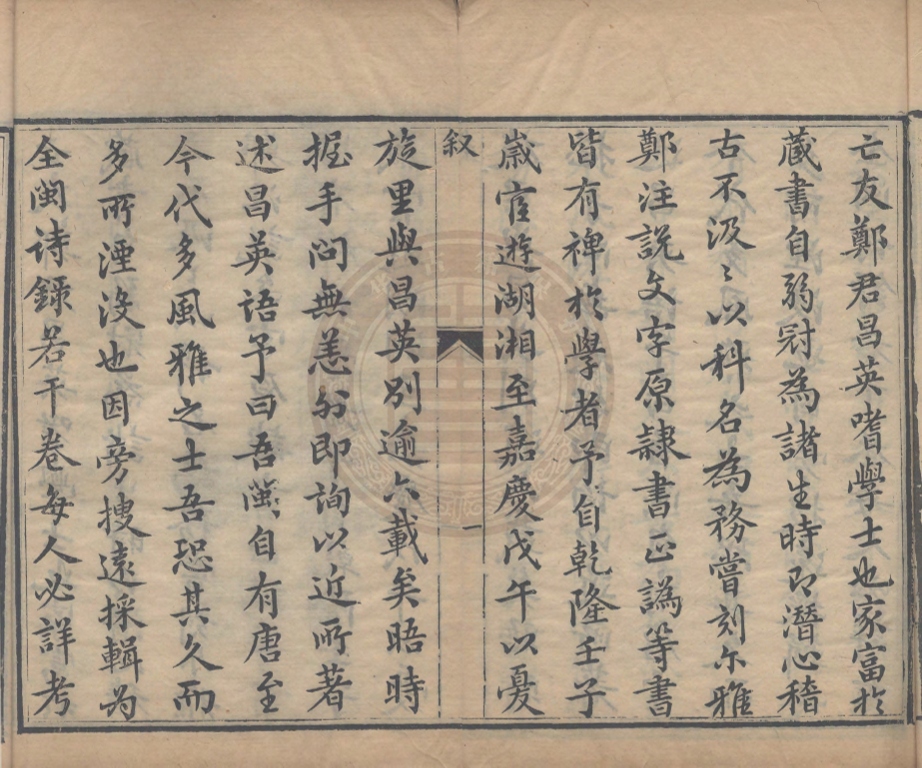 亡友鄭君昌英嗜學士也家富於
藏書自弱冠為諸生時即潛心稽
古不汲〻以科名為務嘗刻尔雅
鄭注說文字原隷書正譌等書
皆有裨於學者予自乾隆壬子
嵗官遊湖湘至嘉慶戊午以憂
叙
一
旋里與昌英別逾六載矣晤時
握手问無恙外即詢以近所著
述昌英語予曰吾閩自有唐至
今代多風雅之士吾恐其久而
多所湮沒也因旁搜遠採輯为
全閩诗録若干卷每人必詳考